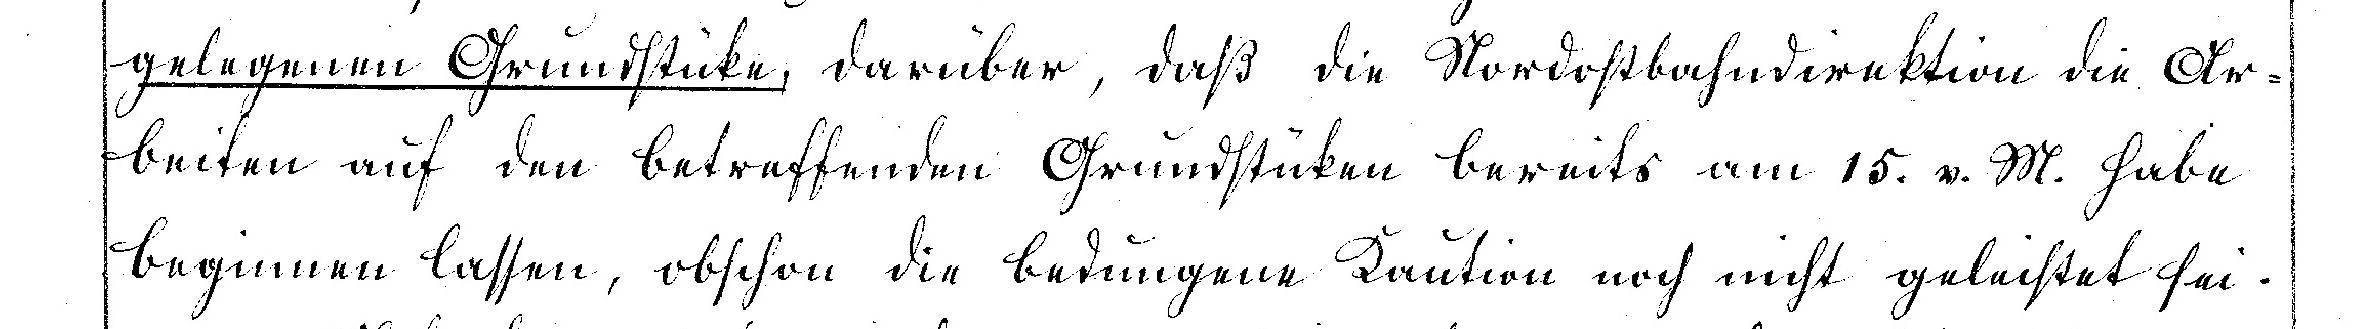 gelegenen Grundstüke, darüber, daß die Nordostbahndirektion die Ar=
beiten auf den betreffenden Grundstüken bereits am 15. v. M. habe
beginnen lassen, obschon die bedungene Kaution noch nicht geleistet sei.